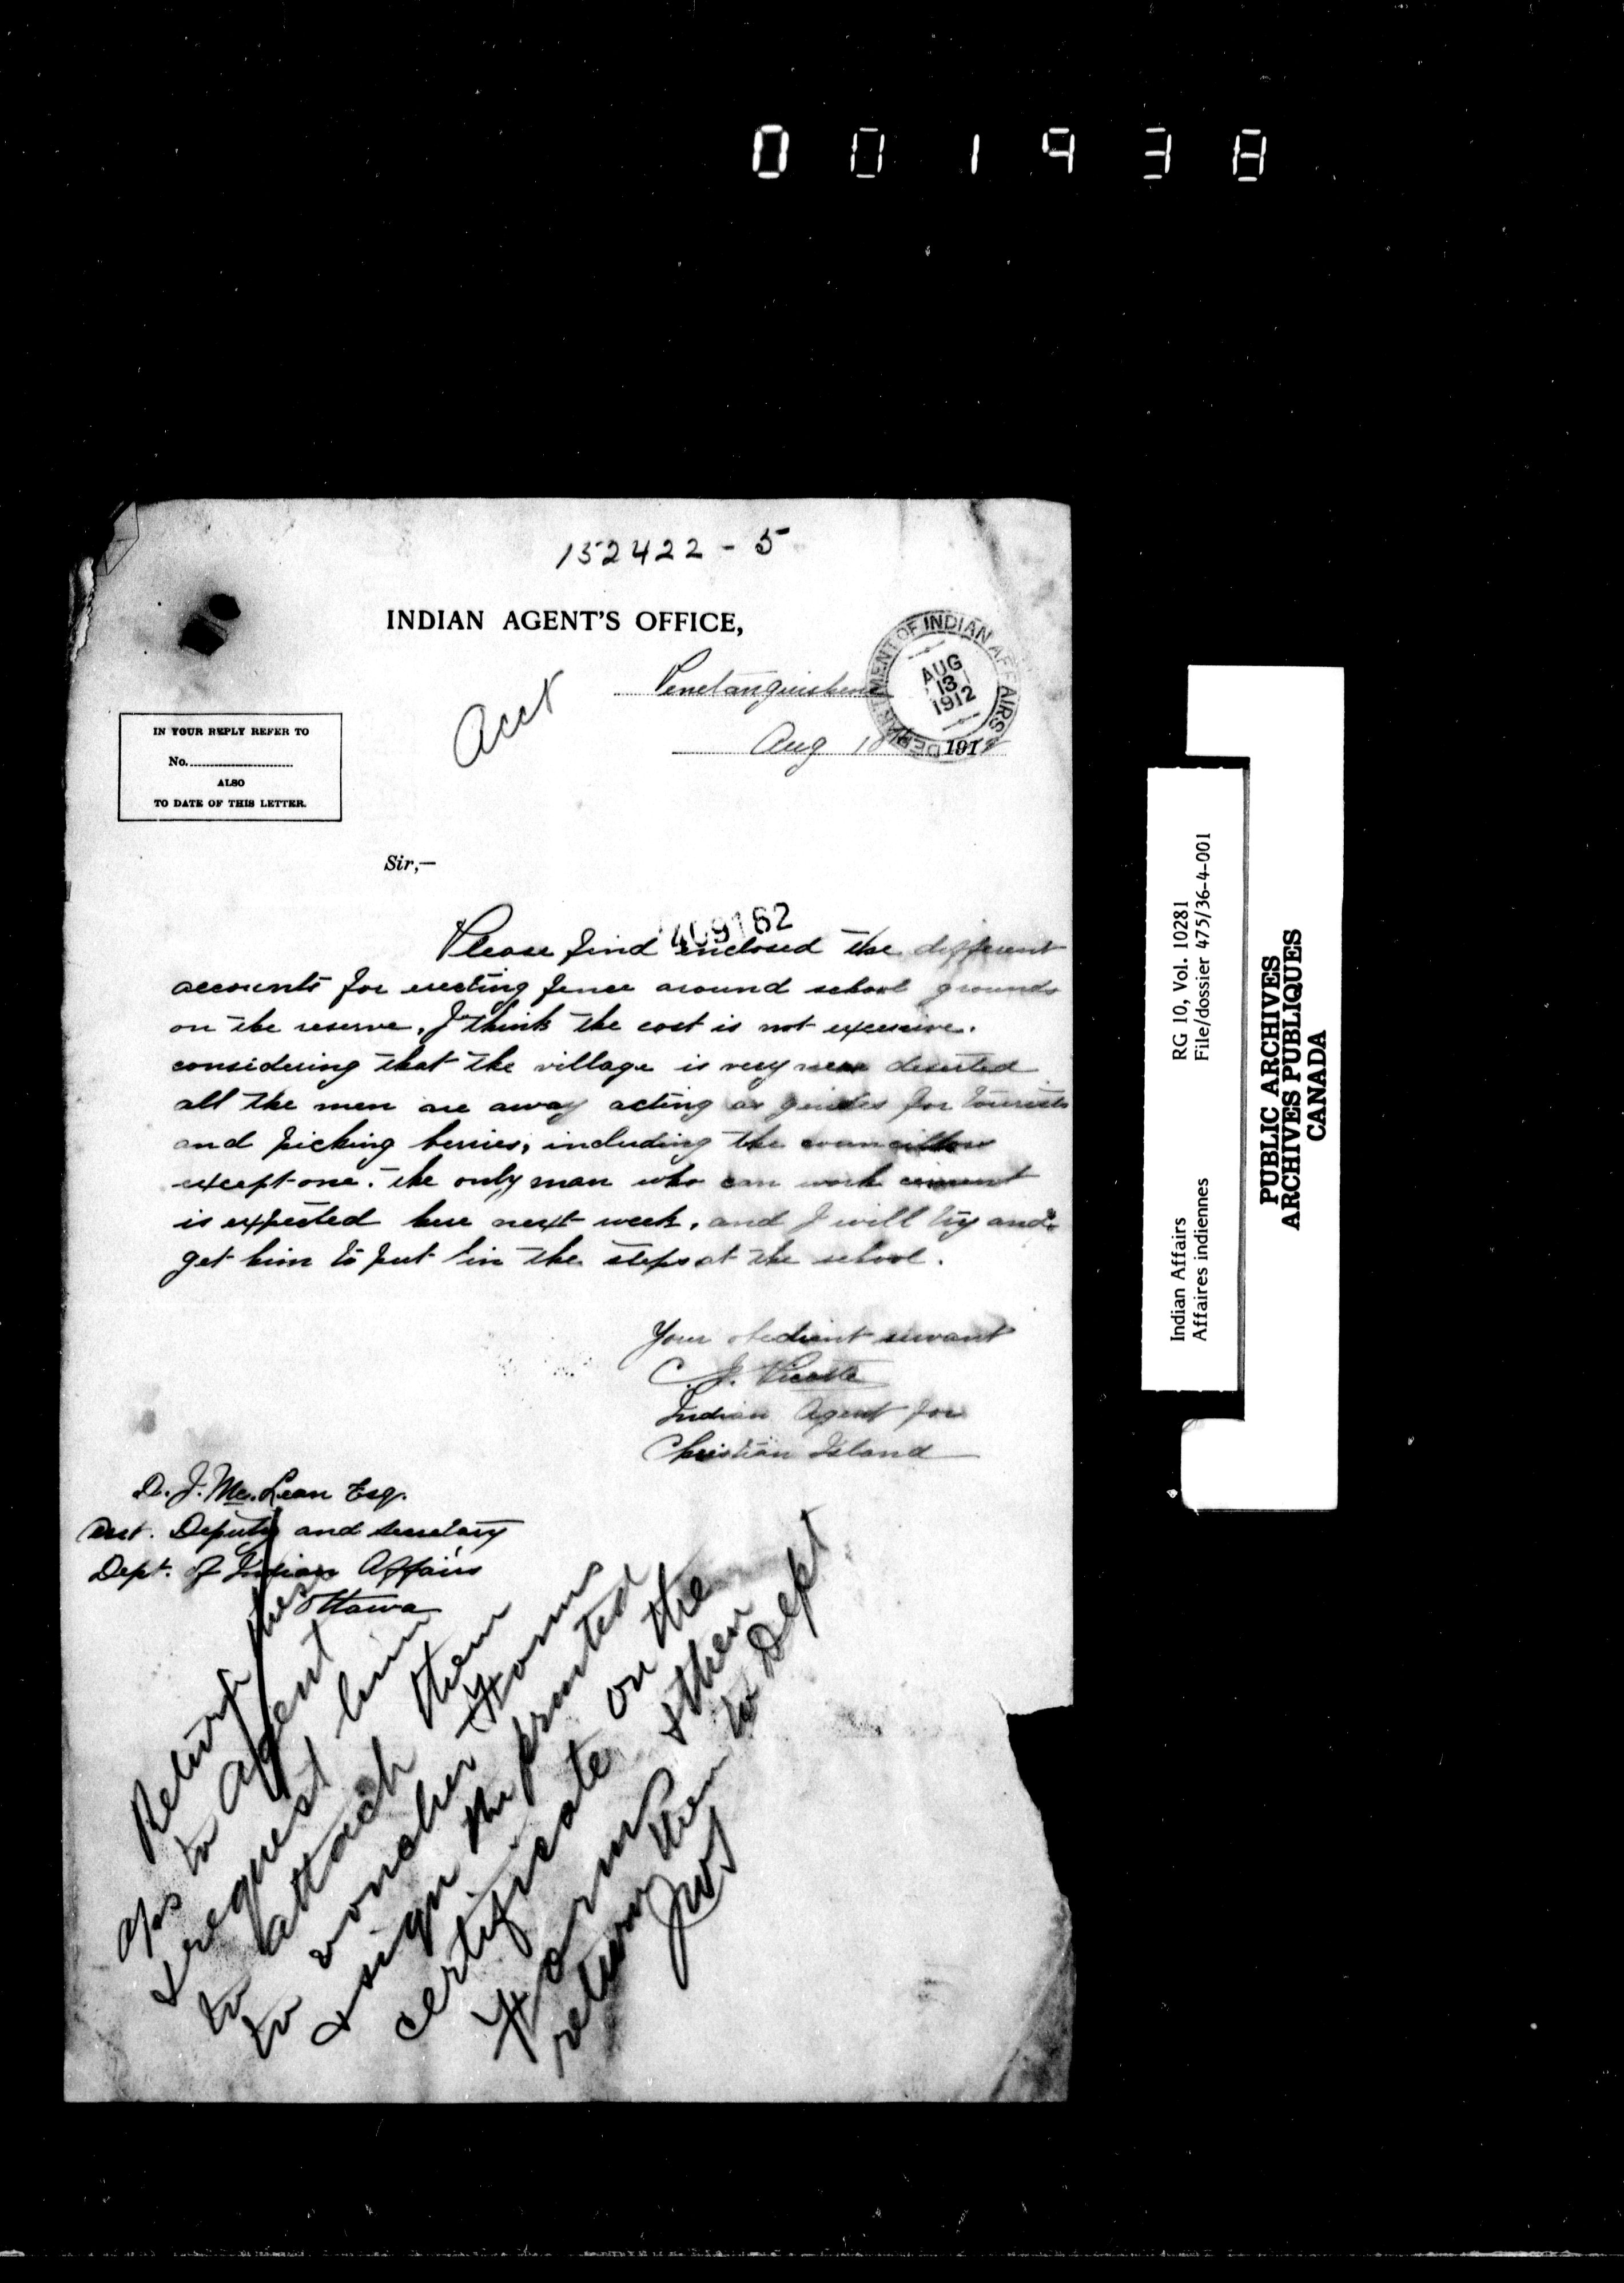 001938
152422 - 5
INDIAN AGENT'S OFFICE,
Penetanguishene
DEPARTMENT OF INDIAN AFFAIRS
AUG
13
1912
Acct
Aug 1912
IN YOUR REPLY REFER TO
No.
ALSO
TO DATE OF THIS LETTER.
Sir,—
409162
Please find enclosed the different
accounts for erecting fence around school grounds
on the reserve, I think the cost is not excessive.
considering that the village is very near deserted
all the men are away acting as guides for tourists
and picking berries, including the councillors
except one. the only man who can work cement
is expected here next week, and I will try and
get him to put in the steps at the school.
Your obedient servant
C. J.
Indian Agent for
Christian Island
D. J. McLean Esq.
Asst. Deputy and Secretary
Dept. of Indian Affairs
Ottawa
Return these
a/cs to agent
& request him
to attach them
to voucher forms
& sign the printed
certificate on the
forms & then
return them to Dept
Indian Affairs RG 10, Vol. 10281
Affaires indiennes File/dossier 475/36-4-001
PUBLIC ARCHIVES
ARCHIVES PUBLIQUES
CANADA